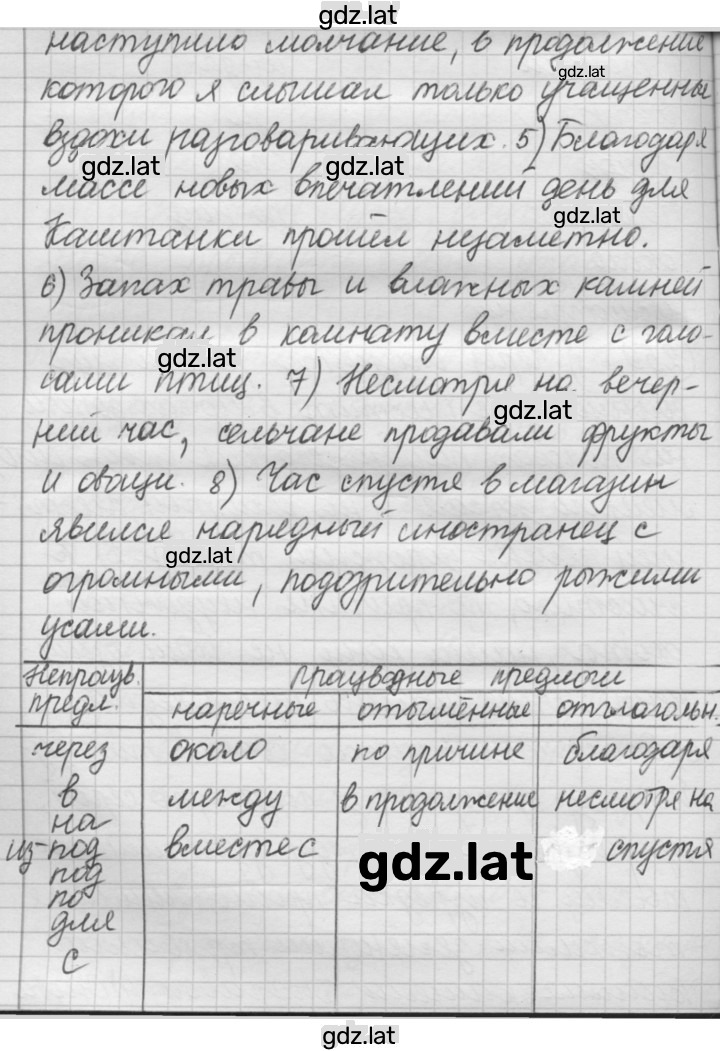 gdz.lat
наступило молчание, в продолжение
gdz.lat
которого я слышал только учащенны
вздохи разговаривающих. 5) Благодаря
gdz.lat
gdz.lat
массе новых впечатлений день для
gdz.lat
Каштанки прошёл незаметно.
6) Запах травы и влажных камней
проникал в комнату вместе с голо-
gdz.lat
сами птиц. 7) Несмотря на вечер-
gdz.lat
ний час, сельчане продавали фрукты
и овощи. 8) Час спустя в магазин
явился нарядный иностранец с
gdz.lat
огромными, подозрительно рыжими
усами.
Непроизв. предл. Производные предлоги
наречные отымённые отглагольн.
через около по причине благодаря
в между в продолжение несмотря на
на
из-под вместе с спустя
gdz.lat
под
по
для
с
gdz.lat